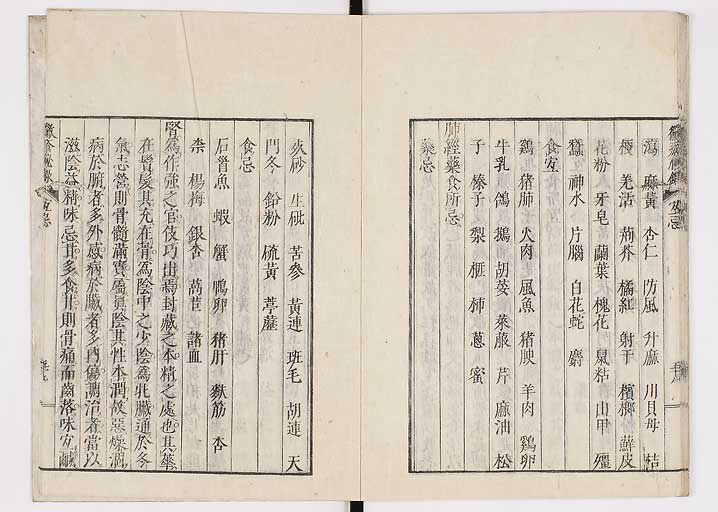 瀉　麻黃　杏仁　防風　升麻　川貝母　桔
梗　羌活　荊芥　橘紅　射干　檳榔　蘚皮
花粉　牙皂　繭葉　槐花　鼠粘　山甲　殭
蠶　神水　片腦　白花蛇　麝
食宜
鷄　猪肺　火肉　風魚　猪腴　羊肉　鷄卵
牛乳　鴿　鵝　胡荽　萊菔　芹　麻油　松
子　榛子　梨　榧　柿　蔥　蜜
肺經藥食所忌
藥忌
火砂　生枇　苦參　黃連　班毛　胡連　天
門冬　鉛粉　硫黃　葶藶
食忌
石首魚　蝦　蟹　鴨卵　猪肝　筋　杏
柰　楊梅　銀杏　萵苣　諸血
腎為作強之官伎巧出焉封藏之本精之處也其華
在髮其充在骨為陰中之少陰為牝臟通於冬
氣志營則骨髓滿實屬眞陰其性本潤故惡燥涸
病於腑者多外感病於臟者多內傷調治者當以
滋陰益精味忌甘多食甘則骨痛而齒落味宜鹹